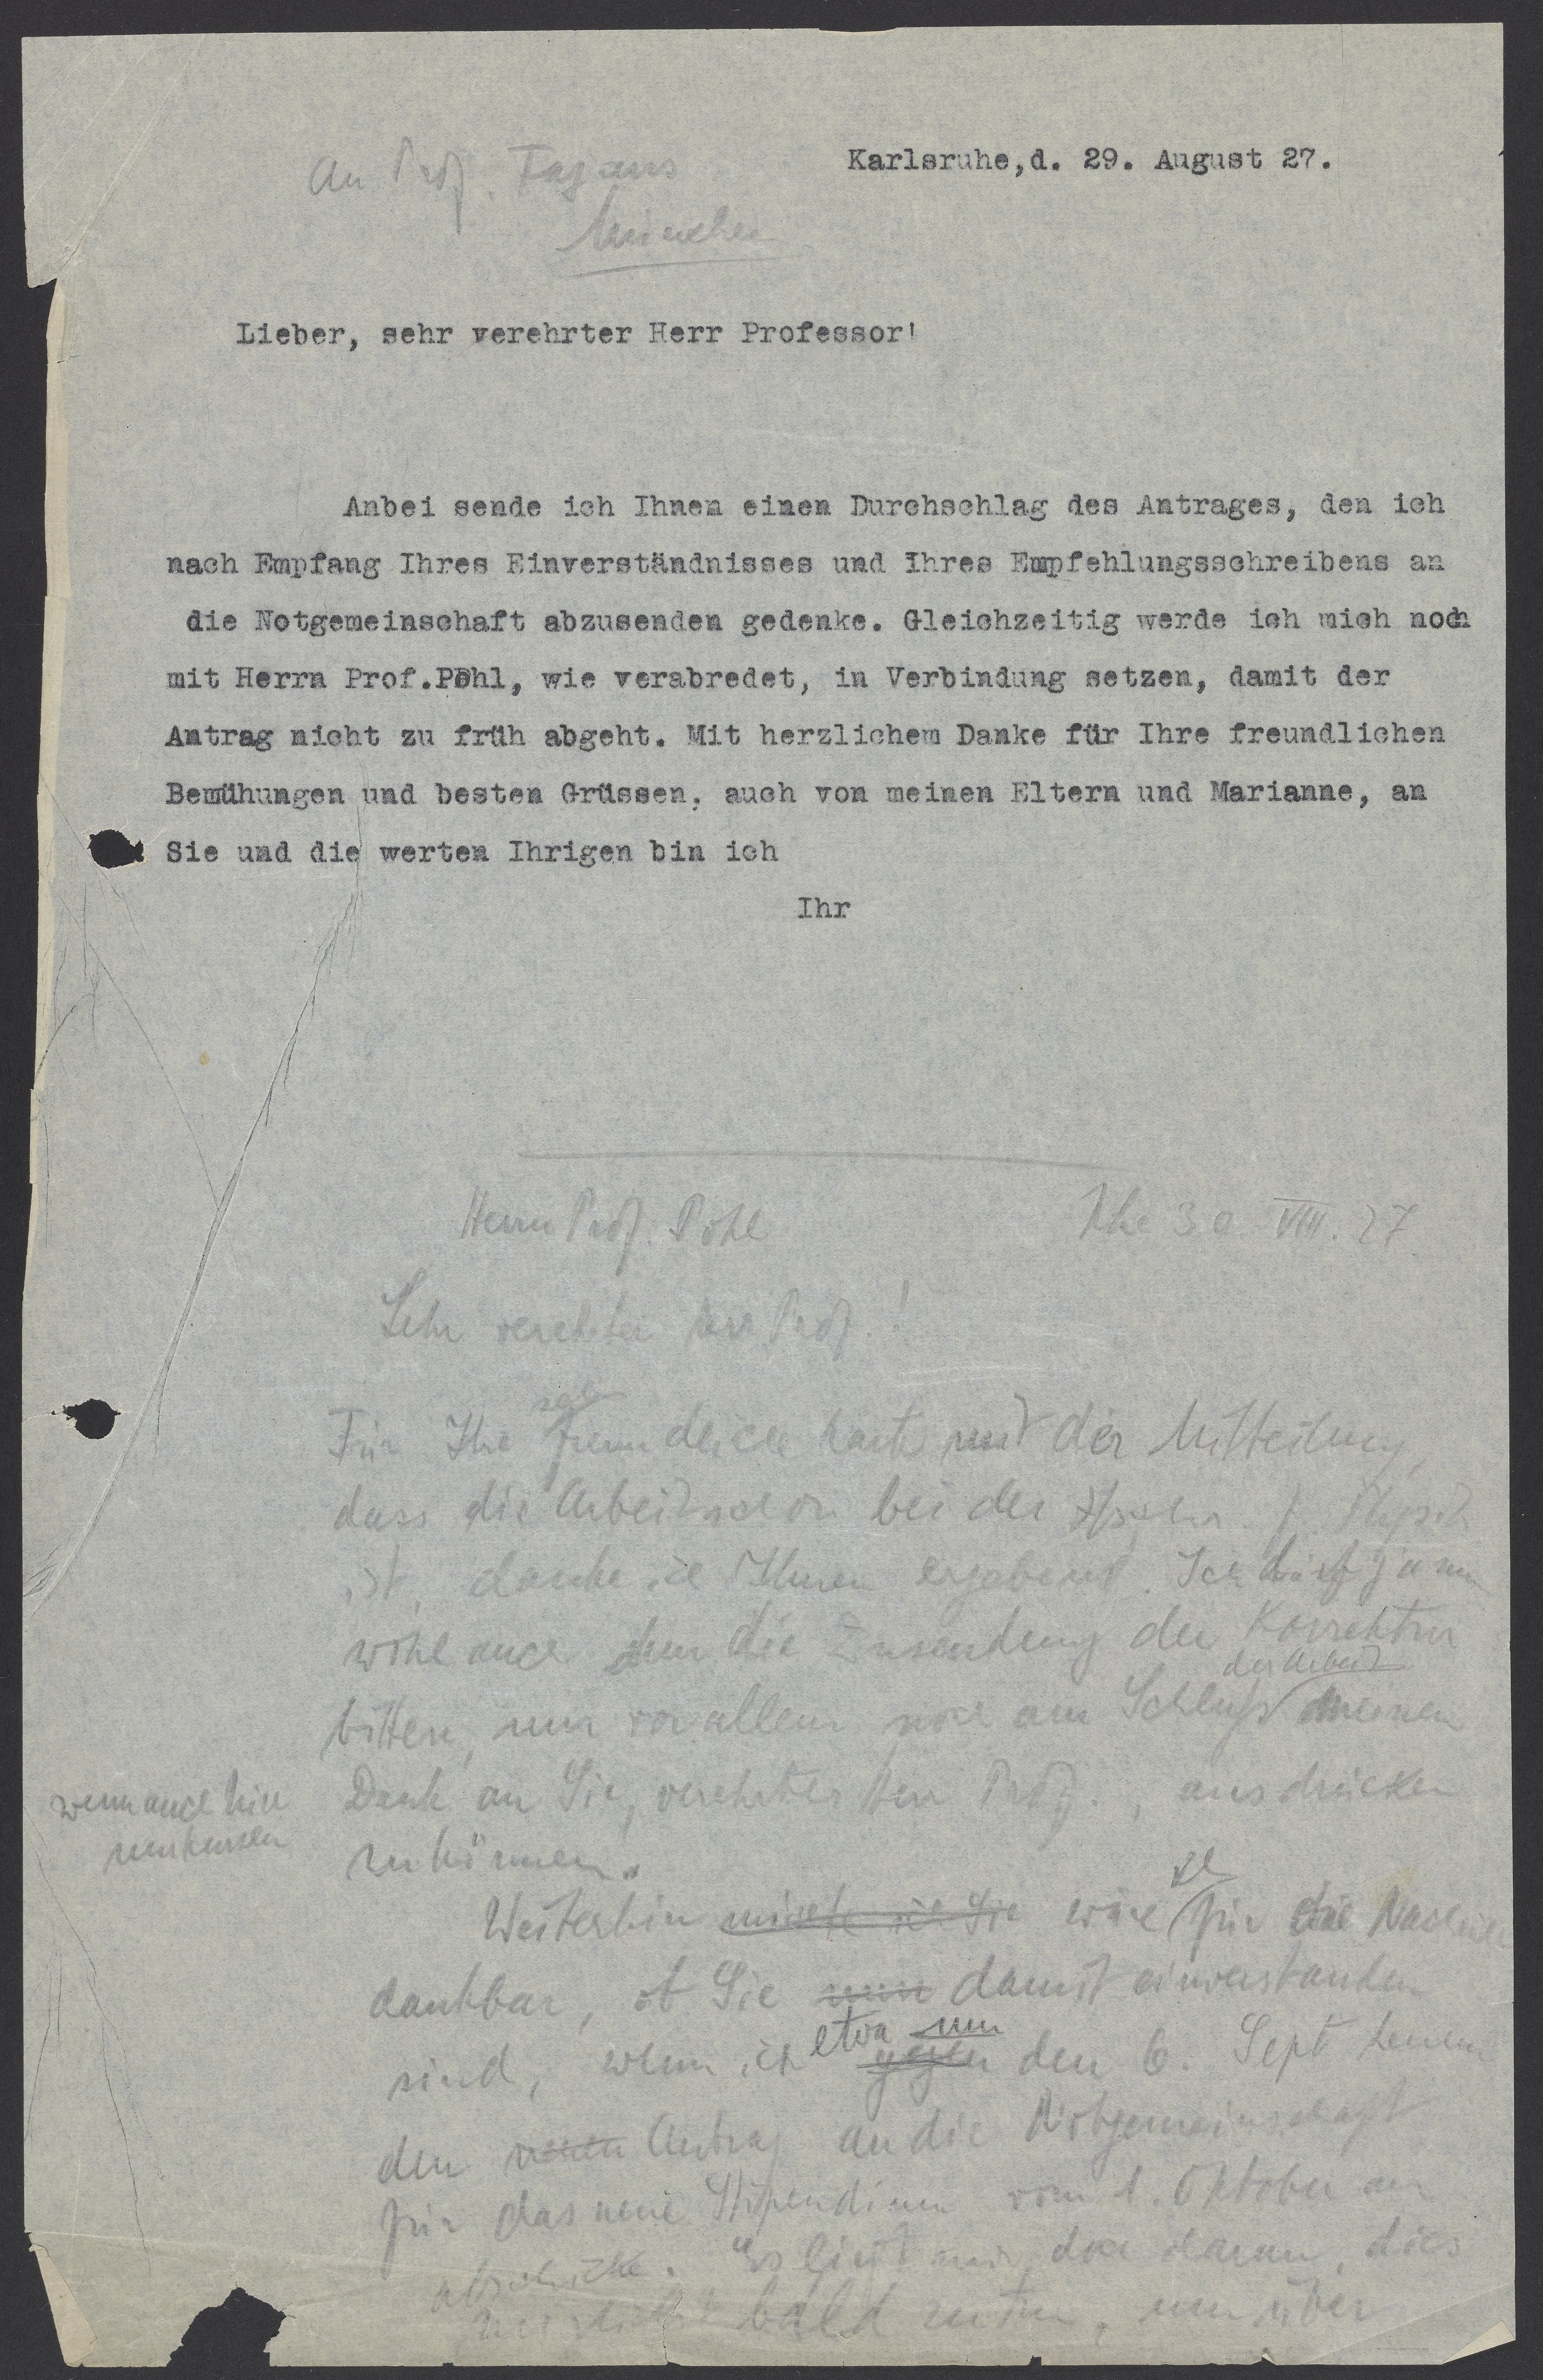 An Prof. Fajans
München
Karlsruhe,d. 29. August 27.
Lieber, sehr verehrter Herr Professor!
Anbei sende ich Ihnen einen Durchschlag des Antrages, den ich
nach Empfang Ihres Einverständnisses und Ihres Empfehlungsschreibens an
die Notgemeinschaft abzusenden gedenke. Gleichzeitig werde ich mich noch
mit Herrn Prof.Pohl, wie verabredet, in Verbindung setzen, damit der
Antrag nicht zu früh abgeht. Mit herzlichem Danke für Ihre freundlichen
Bemühungen und besten Grüssen, auch von meinen Eltern und Marianne, an
Sie und die werten Ihrigen bin ich
Ihr
Herrn Prof. Pohl
Khe 30. VIII. 27
Sehr verehrter Herr Prof.!
Für Ihre sehr freundliche Karte mit der Mitteilung,
dass die Arbeit schon bei der Ztschr. f. Physik
ist, danke ich Ihnen ergebenst. Ich darf ja nun
wohl auch um die Zusendung der Korrektur
bitten, um vor allem noch am Schluß der Arbeit meinen
Dank an Sie, verehrter Herr Prof., ausdrücken
zu können.
Weiterhin möchte ich Sie wäre ich für die Nachricht
dankbar, ob Sie nun damit einverstanden
sind, wenn ich etwa um gegen den 6. Sept
den Antrag an die Notgemeinschaft
für das neue Stipendium vom 1. Oktober an
abschicke. Es liegt mir daran, dies
bald zu tun, um über